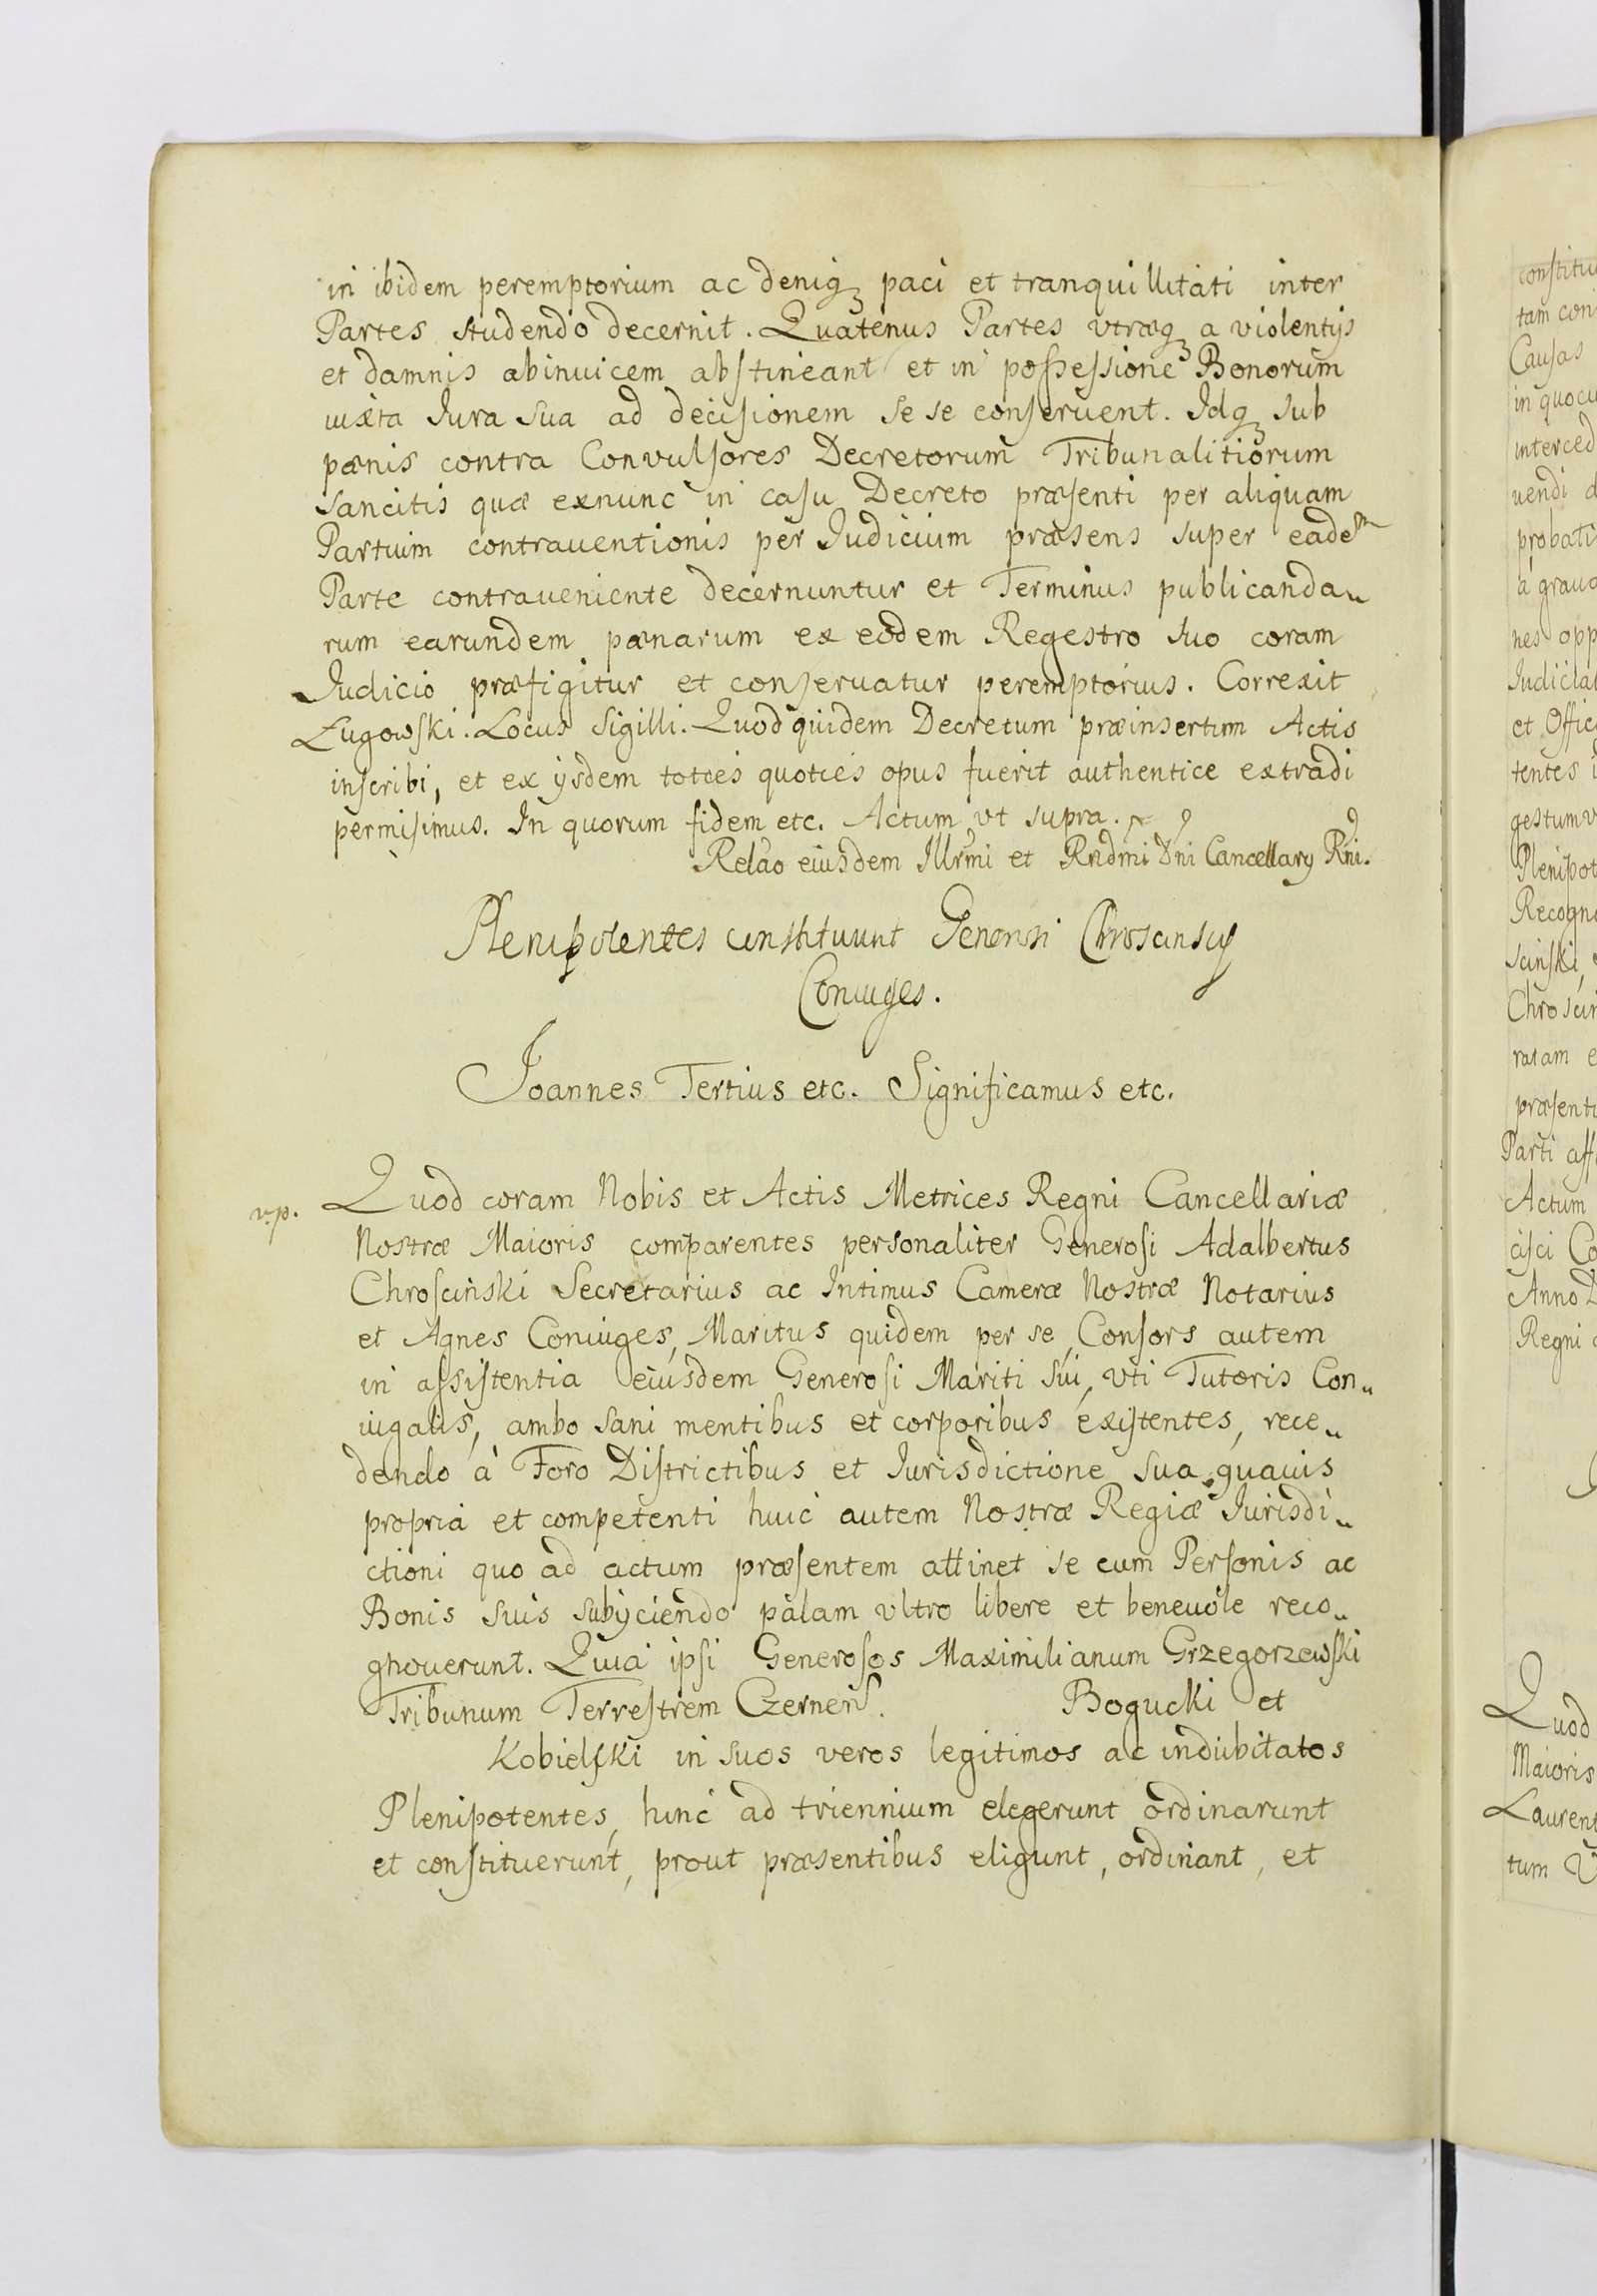 in ibidem peremptorium ac deniqꝫ paci et tranquillitati inter
Partes studendo decernit. Quatenus Partes vtræqꝫ a violentijs
et damnis abinuicem abstineant et in possessione Bonorum
iuxta Iura sua ad decisionem se se conseruent. Idqꝫ sub
pænis contra Convulsores Decretorum Tribunalitiorum
sancitis quæ exnunc in casu Decreto præsenti per aliquam
Partium contrauentionis per Iudicium præsens super eadem
Parte contraueniente decernuntur et Terminus publicanda„
rum earundem pænarum ex eodem Regestro suo coram
Iudicio præfigitur et conseruatur peremptorius. Correxit
Ługowski. Locus Sigilli. Quod quidem Decretum præinsertum Actis
inscribi, et ex ijsdem toties quoties opus fuerit authentice extradi
permisimus. In quorum fidem etc. Actum vt supra.
Relao eiusdem Illrmi et Rndmi Dni Cancellary Rni.
Plenipotentes constituunt Generosi Chroscinscij
Coniuges.
Joannes Tertius etc. Significamus etc.
v.p. Quod coram Nobis et Actis Metrices Regni Cancellariæ
Nostræ Maioris comparentes personaliter Generosi Adalbertus
Chroscinski Secretarius ac Intimus Cameræ Nostræ Notarius
et Agnes Coniuges, Maritus quidem per se, Consors autem
in assistentia eiusdem Generosi Mariti sui, vti Tutoris Con„
iugalis, ambo sani mentibus et corporibus existentes, rece„
dendo à Foro Districtibus et Iurisdictione sua quauis
propria et competenti huic autem Nostræ Regiæ Iurisdi„
ctioni quo ad actum præsentem attinet se cum Personis ac
Bonis suis subijciendo palam vltro libere et beneuole reco„
gnouerunt. Quia ipsi Generosos Maximilianum Grzegorzewski
Tribunum Terrestrem Czernens. Bogucki et
Kobielski in suos veros legitimos ac indubitatos
Plenipotentes, hinc ad triennium elegerunt ordinarunt
et constituerunt, prout præsentibus eligunt, ordinant, et
constitu
tam con
Causas
in quocu
interced
uendi d
probati
à graua
nes opp
Iudicia
et Offic
tentes i
gestum v
Plenipot
Recogn
scinski,
Chroscin
ratam e
præsent
Parti aff
Actum
cisci Co
Anno D
Regni
Quod
Maioris
Laurent
tum